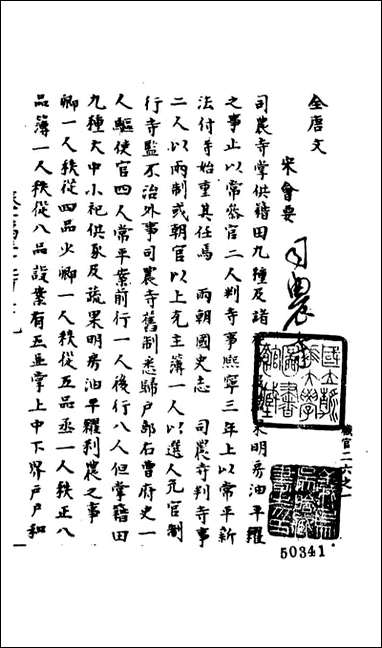 全唐文
宋會要
司農寺
司農寺掌供籍田九種及諸果明房油平糴
之事止以常叅官二人判寺事熙寧三年上以常平新
法付寺始重其任焉 兩朝國史志 司農寺判寺事
二人以兩制或朝官以上充主簿一人以選人充官制
行寺監不治外事司農寺舊制悉歸户部右曹府史一
人驅使官四人常平案前行一人後行八人但掌籍田
九種大中小祀供豕及蔬果明房油平糴利農之事
卿一人秩從四品少卿一人秩從五品丞一人秩正八
品簿一人秩從八品設案有五
掌上中下界户户和
職官二六之一
50341